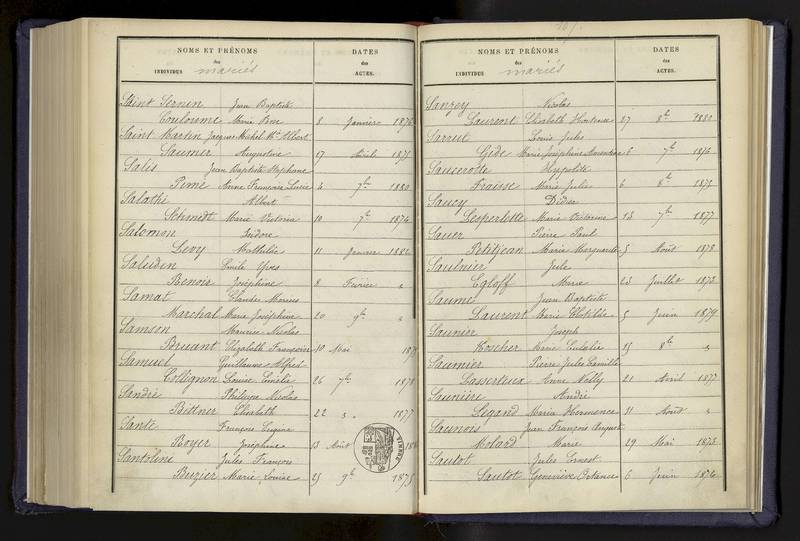 NOMS ET PRÉNOMS
des
INDIVIDUS mariés
DATES
des
ACTES.
Saint Sernin Jean Baptiste
Couloume Marie Rose 8 Janvier 1876
Saint Martin Jacques Michel Albert
Saumer Augustine 17 Avril 1875
Salis Jean Baptiste Stéphane
Pime Anne Françoise Lucie 4 7bre 1880
Salathé Albert
Schmidt Marie Victoria 10 7bre 1874
Salomon Isidore
Levy Mathilde 11 Janvier 1882
Saludin Emile Yves
Renoir Joséphine 8 Février "
Samat Claude Marius
Marchal Marie Joséphine 20 9bre "
Samson Maurice Nicolas
Bruant Elizabeth Françoise 10 Mai
Samuel Guillaume Alfred
Collignon Louise Emélie 26 7bre 1878
Sandré Philippe Nicolas
Bittner Elisabeth 22 " 1877
Santé François Eugène
Boyer Joséphine 13 Août
Santoline Jules François
Buzier Marie Louise 25 9bre 1875
NOMS ET PRÉNOMS
des
INDIVIDUS mariés
DATES
des
ACTES.
Sanzey Nicolas
Laurent Elisabeth Hortense 27 8bre 1880
Sarrut Louis Jules
Gède Marie Joséphine 7bre 1874
Saucerotte Hypolite
Fraisse Marie Julie 6 8bre 1877
Saucy Didier
Lesperlette Marie Victorine 13 7bre 1877
Sauer Pierre Paul
Petitjean Marie Marguerite 5 Août 1878
Saulnier Jule
Egloff Marie 23 Juillet 1873
Saume Jean Baptiste
Laurent Marie Clotilde 5 Juin 1879
Saunier Joseph
Koscher Marie 15 8bre "
Saunier Pierre Jules Camille
Lasserteux Anne Nelly 21 Avril 1877
Saunière André
Legand Maria Hermence 11 Août "
Saunois Jean François August
Molard Marie 29 Mai 1873
Sautot Jules Ernest
Sautot Geneviève Octance 6 Juin 1874